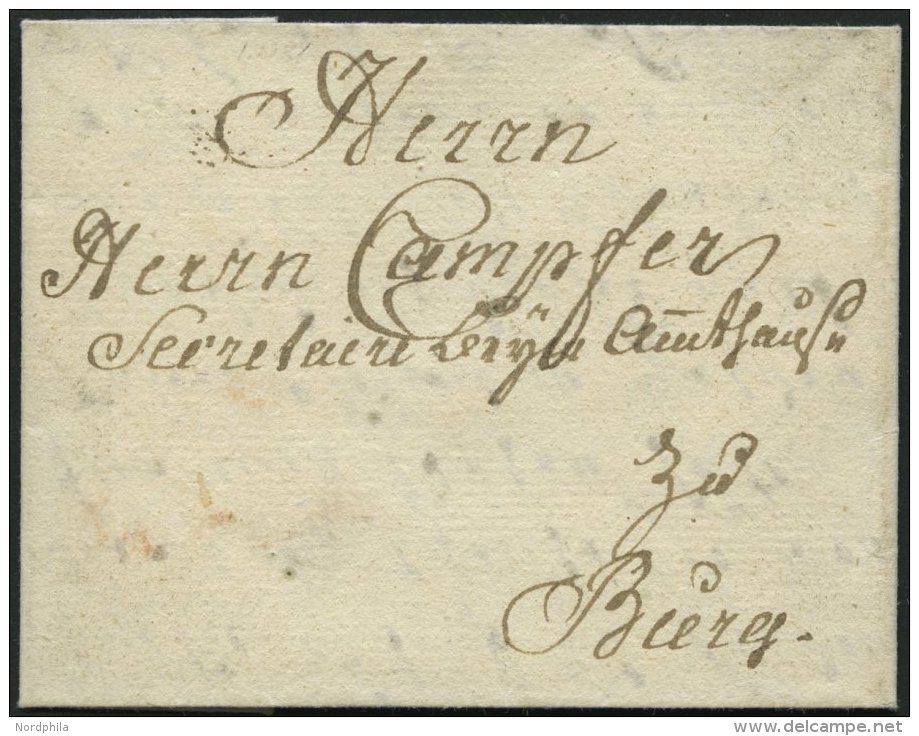 Herrn
Herrn Campfer
Secretaire beym Amthause
zu
Burg.
Nordphila
www.delcampe.net